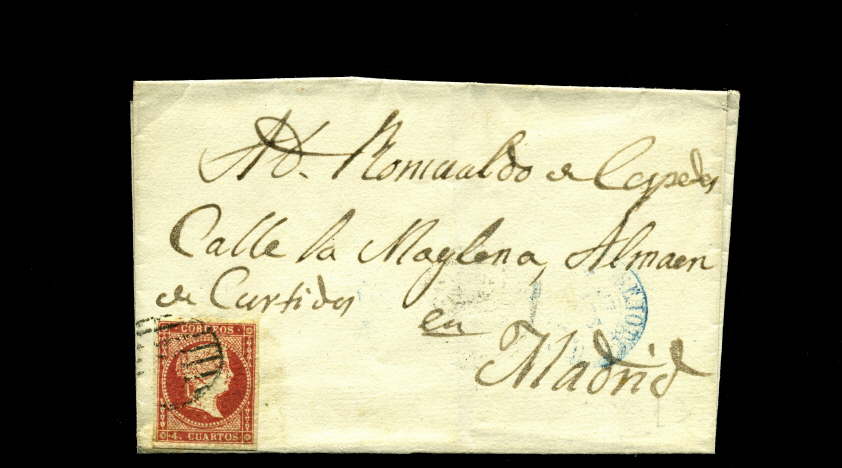 A D. Romualdo de Cespedes
Calle la Maglena, Almaen
de Curtidos
en
Madrid
CORREOS
4. CUARTOS